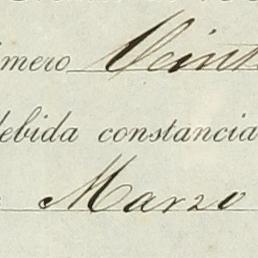 úmero Veint
debida constancia
Marzo